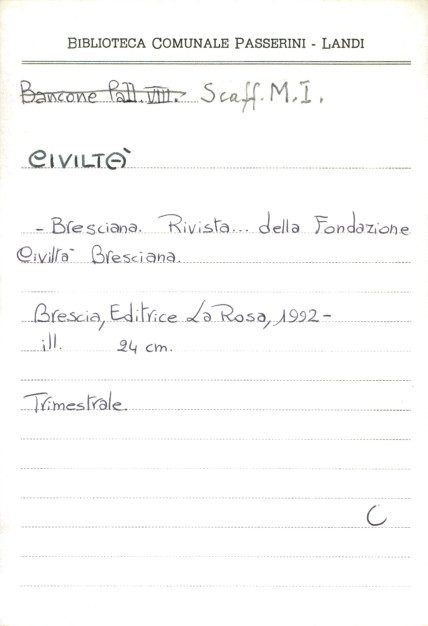 BIBLIOTECA COMUNALE PASSERINI - LANDI
Bancone Pall. VIII. Scaff. M. I.
CIVILTÀ
- Bresciana. Rivista... della Fondazione
Civiltà Bresciana.
Brescia, Editrice La Rosa, 1992-
ill. 24 cm.
Trimestrale.
C